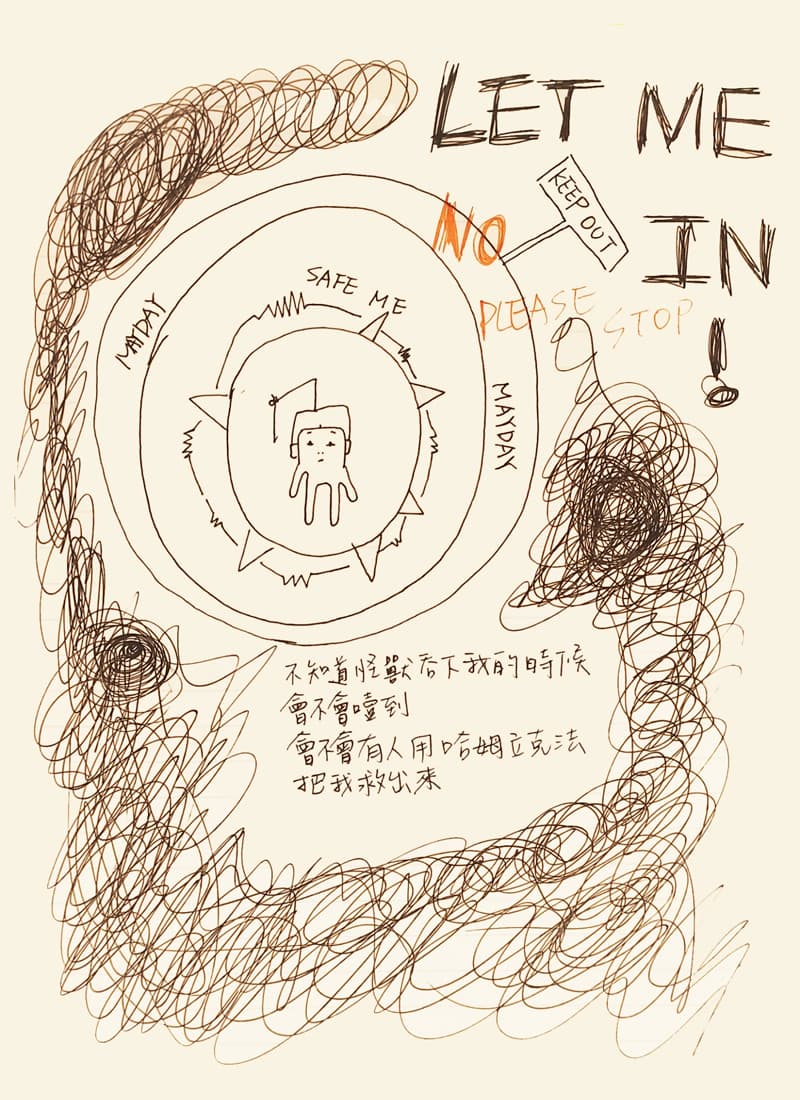 LET ME
IN
!
KEEP OUT
NO
PLEASE STOP
SAFE ME
MAYDAY
MAYDAY
不知道怪獸吞下我的時候
會不會噎到
會不會有人用哈姆立克法
把我救出來